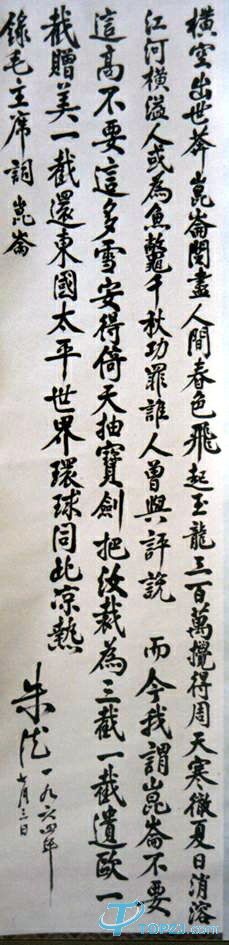 橫空出世莽崑崙閱盡人間春色飛起玉龍三百萬攪得周天寒徹夏日消溶
江河橫溢人或為魚鼈千秋功罪誰人曾與評說 而今我謂崑崙不要
這高不要這多雪安得倚天抽寶劍把汝裁為三截一截遺歐一
截贈美一截還東國太平世界環球同此凉熱
錄毛主席詞崑崙
朱德一九六四年
七月三日
TOPZJ.com